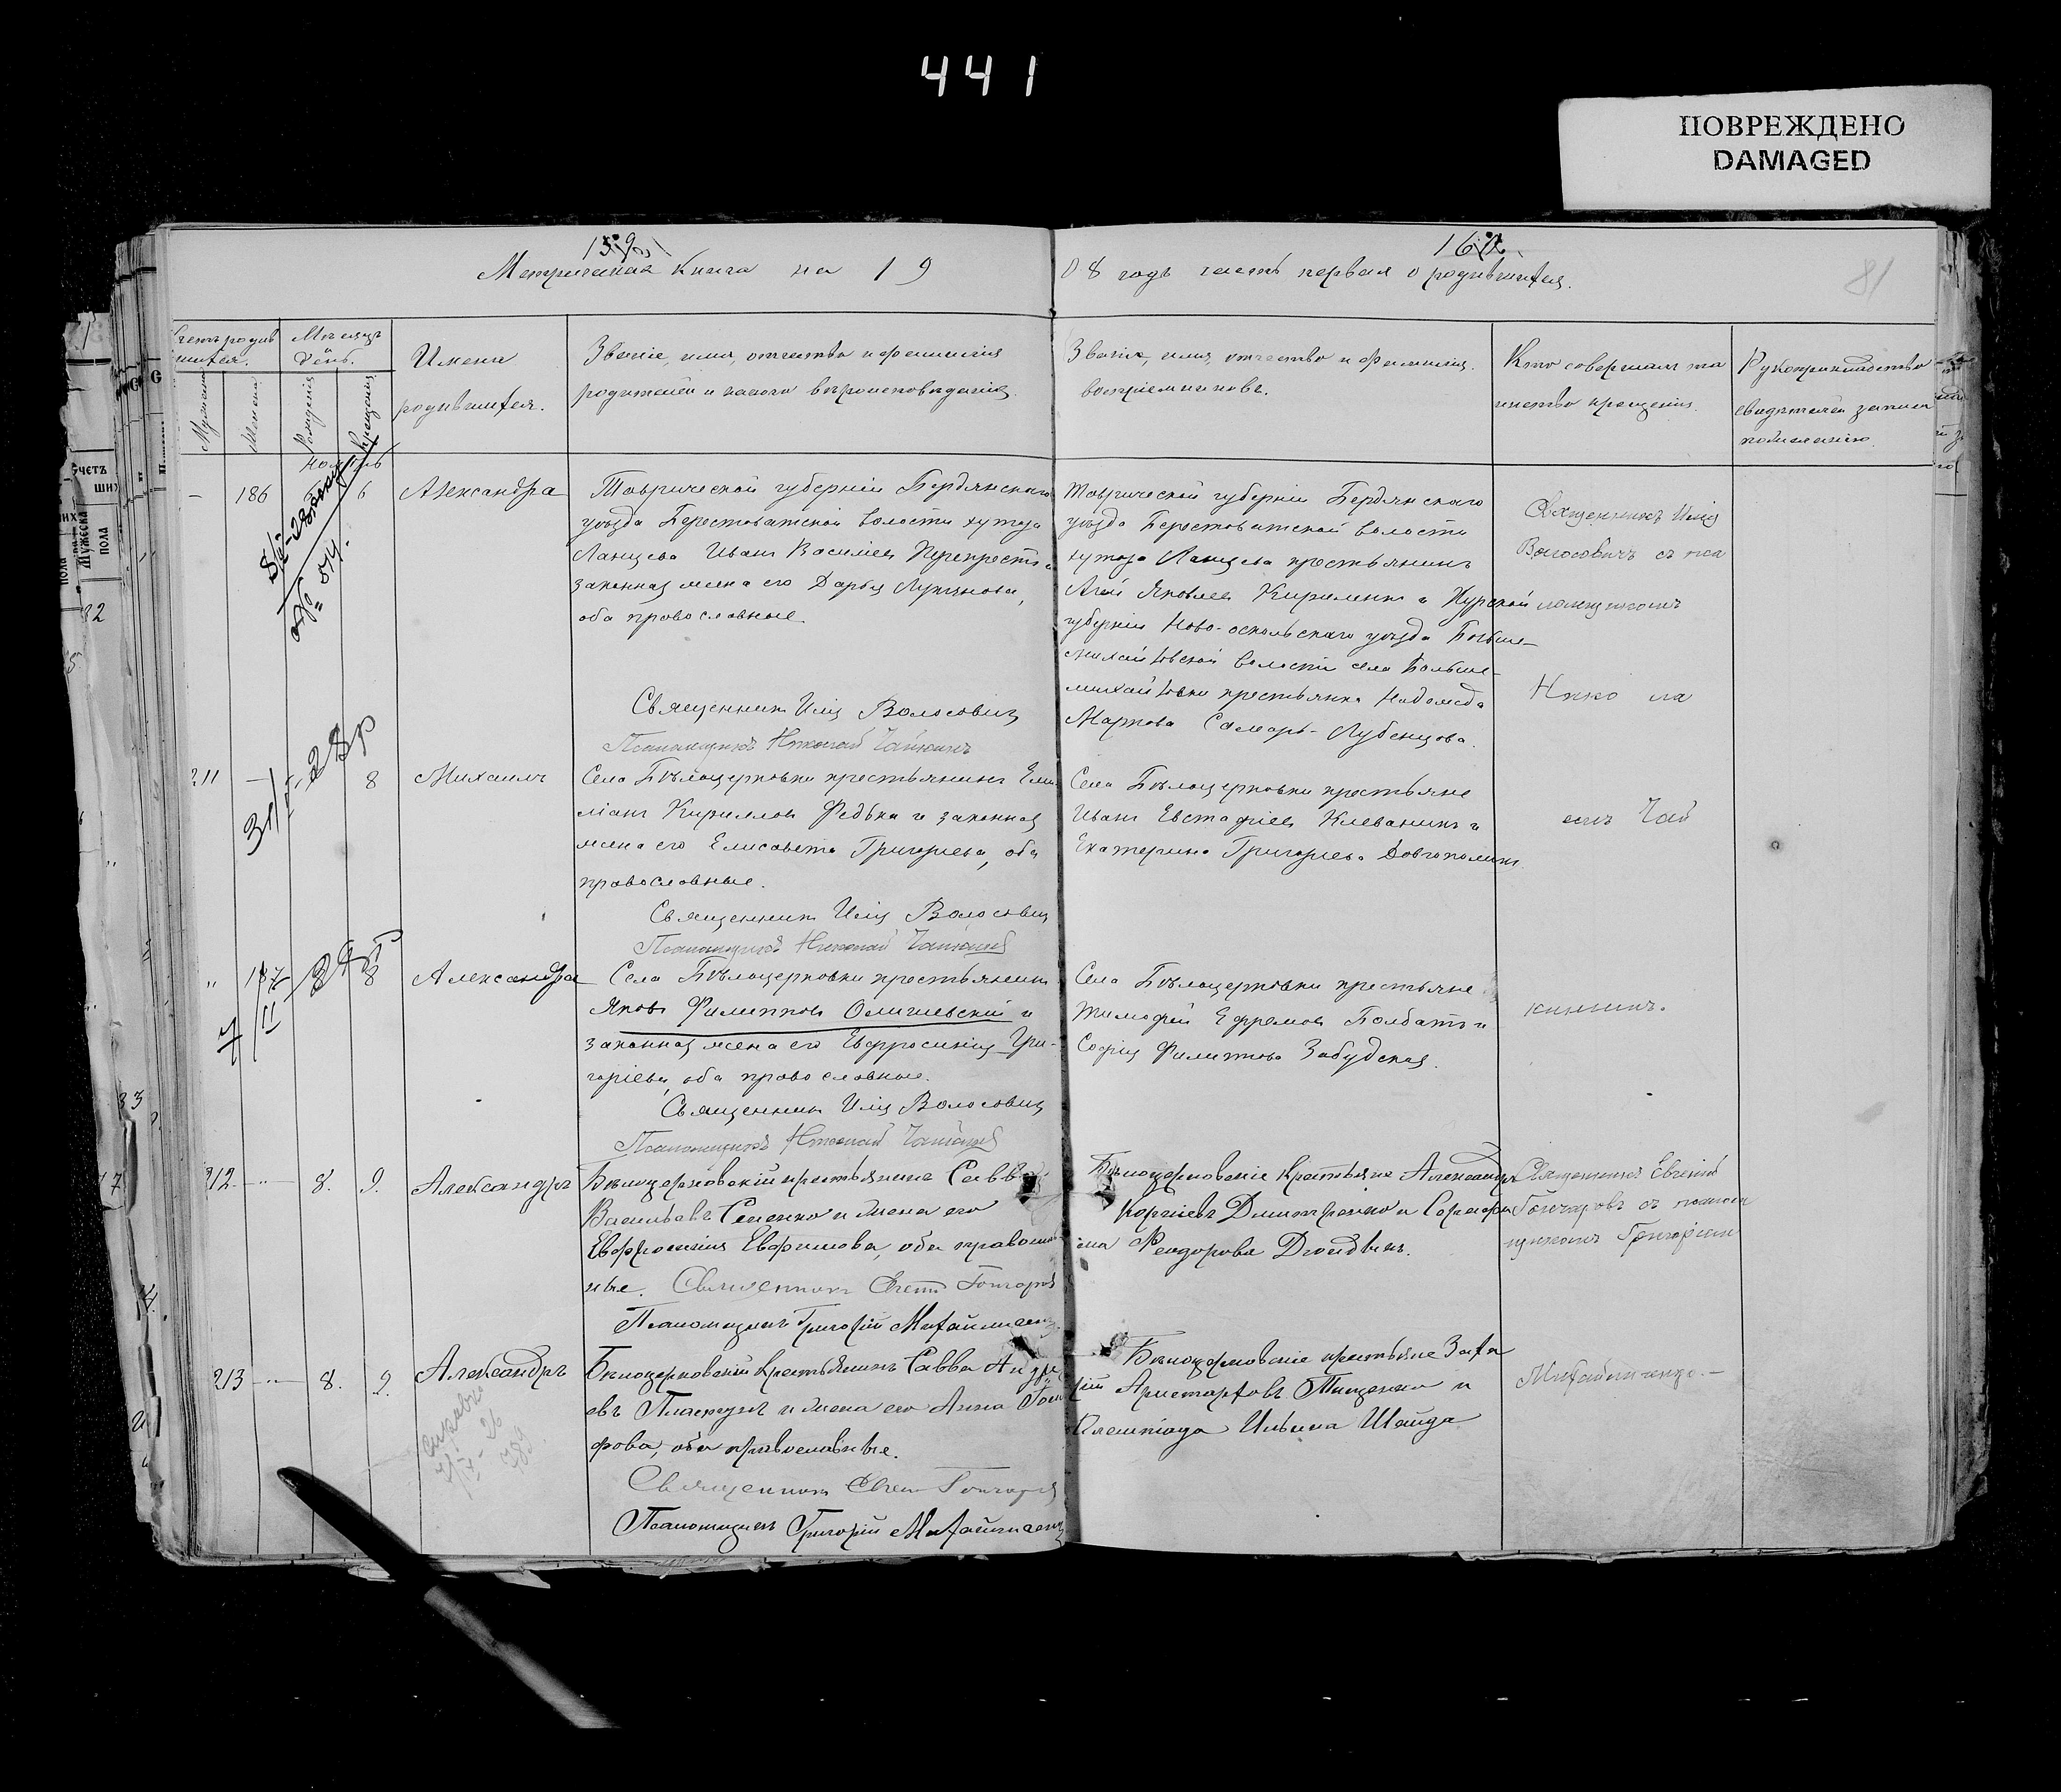 441
ПОВРЕЖДЕНО
DAMAGED
159
160
81
Метрическая Книга на 19
08 годъ часть первая о родившихся.
Счетъ родив
шихся.
Мѣсяцъ
и
день.
Мужска
Женска
Рожденія
Крещенія
Имена
родившихся.
Званіе, имя, отчество и фамилія
родителей и какого вѣроисповѣданія.
Званіе, имя, отчество и фамилія
воспріемниковъ.
Кто совершалъ та
инство крещенія.
Рукоприкладство
свидѣтелей записи
по желанію.
Ноябрь
186
6
Александра
Таврической губерніи Бердянскаго
уѣзда Берестоватской волости хутора
Ланцева Иванъ Василіевъ и
законная жена его Дарья Лукянова,
оба православные.
Священникъ Илія Волосовичъ
Псаломщикъ Николай Чайкинъ
Таврической губерніи Бердянскаго
уѣзда Берестоватской волости
хутора Ланцева крестьянинъ
Яковлевъ Кириленко и Курской
губерніи Ново-оскольскаго уѣзда Больше-
михайловской волости села Больше-
михайловки крестьянка
Маркова Самарь-Лубенцова.
Священникъ Илія
Волосовичъ съ пса
ломщикомъ
Нико ла
емъ Чай
кинымъ.
211
8
Михаилъ
Села Бѣлоцерковки крестьянинъ Еми
ліанъ Кирилловъ Федька и законная
жена его Елисавета Григоріева, оба
православные.
Священникъ Илія Волосовичъ
Псаломщикъ Николай Чайкинъ
Села Бѣлоцерковки крестьяне
Иванъ Евстафіевъ Клеванникъ и
Екатерина Григоріева Довгополикъ
187
8
Александра
Села Бѣлоцерковки крестьянинъ
Яковъ Филипповъ Олишевскій и
законная жена его Евфросинія Гри-
горіева, оба православные.
Священникъ Илія Волосовичъ
Псаломщикъ Николай Чайкинъ
Села Бѣлоцерковки крестьяне
Тимофей Ефремовъ Болбатъ и
Софія Филиппова Забудская.
212
8.
9.
Александръ
Бѣлоцерковскій крестьянинъ Савва
Васильевъ Семенко и жена его
Евфросинія Евфимова, оба православ
ные. Священникъ Евгеній Гончаровъ
Псаломщикъ Григорій
Бѣлоцерковскіе крестьяне Александръ
Корніевъ Дмитренко и Серафи
ма Феодорова
Священникъ Евгеній
Гончаровъ съ псалом
щикомъ Григоріемъ
213
8.
9.
Александръ
Бѣлоцерковскій крестьянинъ Савва Андре
евъ и жена его Анна
фова, оба православные.
Священникъ Евгеній Гончаровъ
Псаломщикъ Григорій
Бѣлоцерковскіе крестьяне Заха
рій Аристарховъ Тищенко и
Ильина Шайда